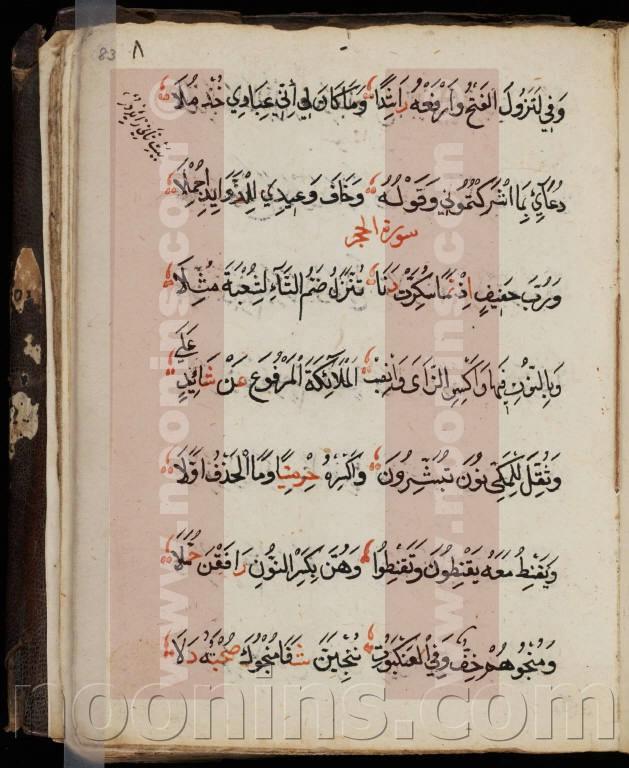 83 ٨
وَفِي لَتَزُولَ الفَتْحُ وَارْفَعْهُ رَاشِدًا وَمَا كَانَ لِي إِنِّي عِبَادِيَ خُذْ مُلَا
دُعَائِي بِمَا أَشْرَكْتُمُونِي وَقَوْلُهُ وَخَافَ وَعِيدِي
سورة الحجر
وَرُبَ خَفِيفٍ إِذْ نَمَا سُكِرَتْ دَنَا تُنَزَّلُ ضَمُّ التَّاءِ لِشُعْبَةَ مُثِّلَا
وَبِالنُّونِ فِيهَا وَاكْسِرِ الزَّايَ وَانْصِبِ الْمَلَائِكَةَ الْمَرْفُوعَ عَنْ شَائِدٍ عَلَي
وَثُقِّلَ لِلْمَكِّي نُونُ تُبَشِّرُونَ وَاكْسِرْهُ حِرْمِيًّا وَمَا الْحَذْفُ اوَّلَا
وَيَقْنِطُ مَعَهُ يَقْنِطُونَ وَتَقْنِطُوا وَهُنَّ بِكَسْرِ النُّونِ رَافَقْنَ حُمَّلَا
وَمُنْجُوهُمْ خِفٌّ وَفِي الْعَنْكَبُوتِ نُنْجِيَنَّ شَفَا مُنْجُوكَ صُحْبَتُهُ دَلَا
www.noonins.com
www.noonins.com
noonins.com